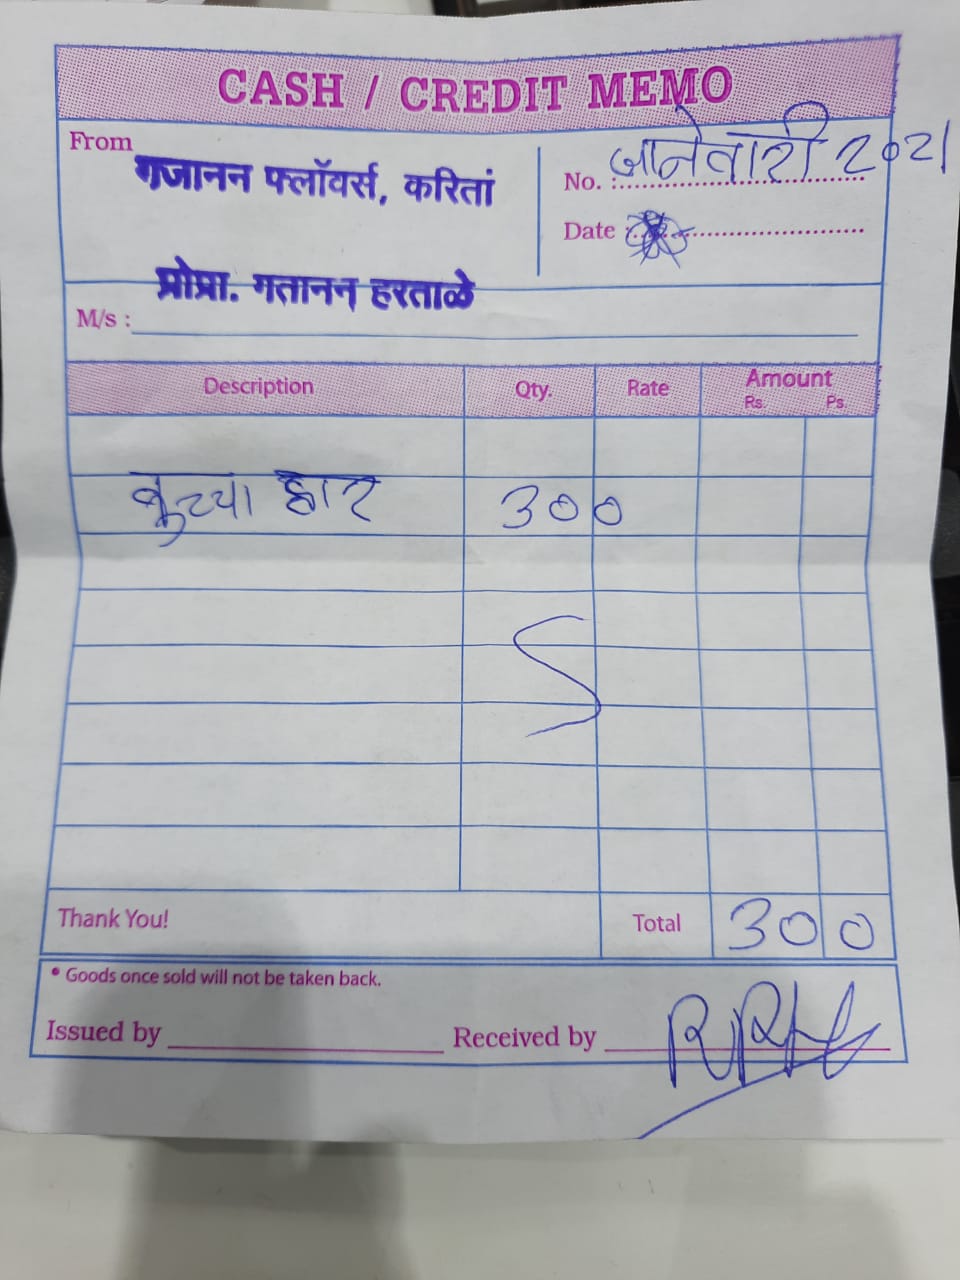 CASH / CREDIT MEMO
From
गजानन फ्लॉवर्स, करितां
जानेवारी 2021
No. :
Date :
प्रोप्रा. गतानन हरताळे
M/s :
Description Qty. Rate Amount
Rs. Ps.
हार 300
Thank You! Total 300
• Goods once sold will not be taken back.
Issued by Received by